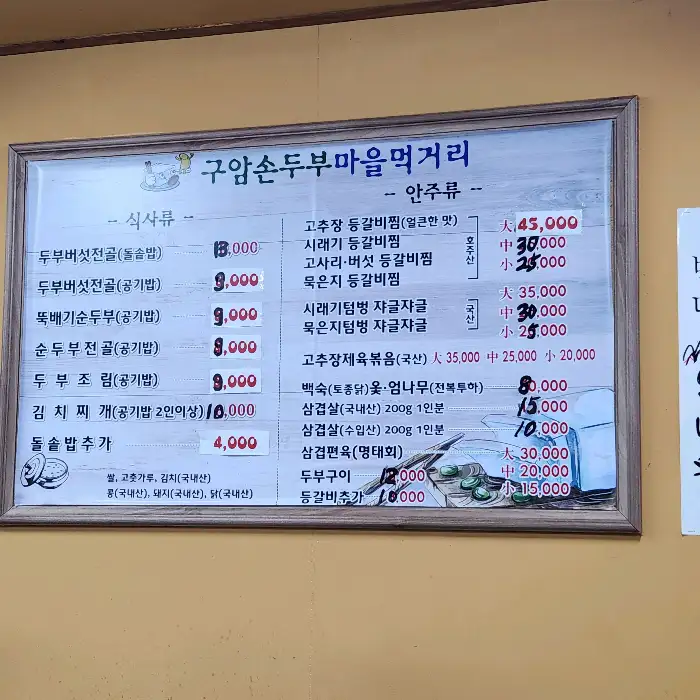 구암손두부마을먹거리
- 식사류 -
두부버섯전골(돌솥밥) 13,000
두부버섯전골(공기밥) 9,000
뚝배기순두부(공기밥) 9,000
순두부전골(공기밥) 9,000
두부조림(공기밥) 9,000
김치찌개(공기밥 2인이상) 10,000
돌솥밥추가 4,000
쌀, 고춧가루, 김치(국내산)
콩(국내산), 돼지(국내산), 닭(국내산)
- 안주류 -
고추장 등갈비찜(얼큰한 맛) 大 45,000
시래기 등갈비찜 中 30,000
고사리·버섯 등갈비찜 小 25,000
묵은지 등갈비찜
호주산
大 35,000
시래기텀벙 자글자글 中 30,000
묵은지텀벙 자글자글 小 25,000
국산
고추장제육볶음(국산) 大 35,000 中 25,000 小 20,000
백숙(토종닭)옻·엄나무(전복투하) 80,000
삼겹살(국내산) 200g 1인분 15,000
삼겹살(수입산) 200g 1인분 10,000
삼겹편육(명태회) 大 30,000
中 20,000
小 15,000
두부구이 12,000
등갈비추가 10,000